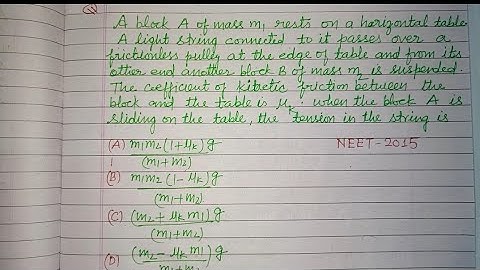 Q
A block A of mass m₁ rests on a horizontal table
A light string connected to it passes over a
frictionless pulley at the edge of table and from its
other end another block B of mass m₂ is suspended.
The coefficient of kinetic friction between the
block and the table is μₖ. when the block A is
sliding on the table, the tension in the string is
(A) m₁m₂(1+μₖ)g / (m₁+m₂) NEET-2015
(B) m₁m₂(1-μₖ)g / (m₁+m₂)
(C) (m₂+μₖm₁)g / (m₁+m₂)
(D) (m₂-μₖm₁)g / m₁+m₂